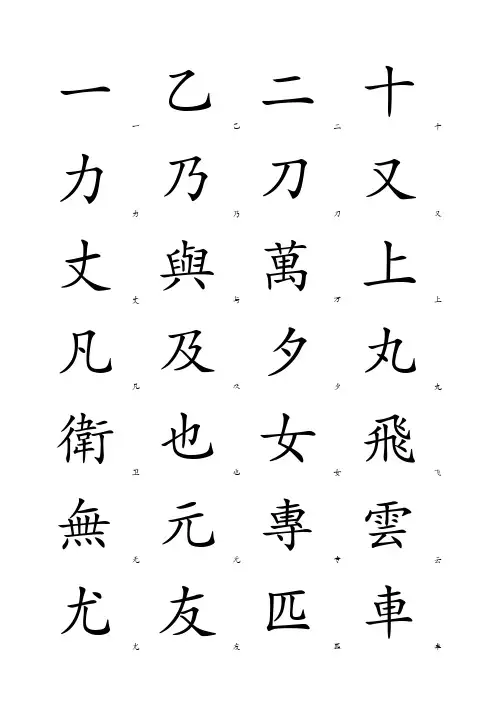 一 乙 二 十
一 乙 二 十
力 乃 刀 又
力 乃 刀 又
丈 與 萬 上
丈 与 万 上
凡 及 夕 丸
凡 及 夕 丸
衛 也 女 飛
卫 也 女 飞
無 元 專 雲
无 元 专 云
尤 友 匹 車
尤 友 匹 车